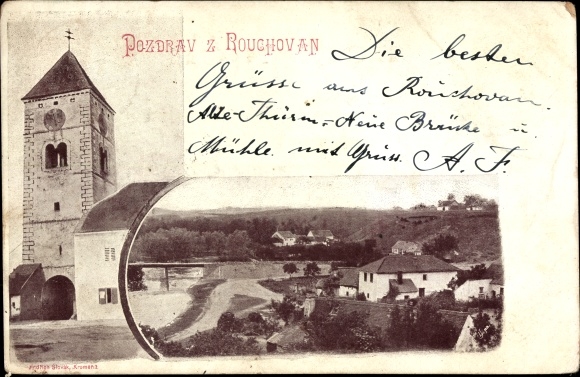 Pozdrav z Rouchovan
Die besten
Grüsse aus Rouchovan.
Alte-Thurm,-Neue Brücke u.
Mühle. mit Gruss. A. F.
Jindřich Slovák, Kroměříž